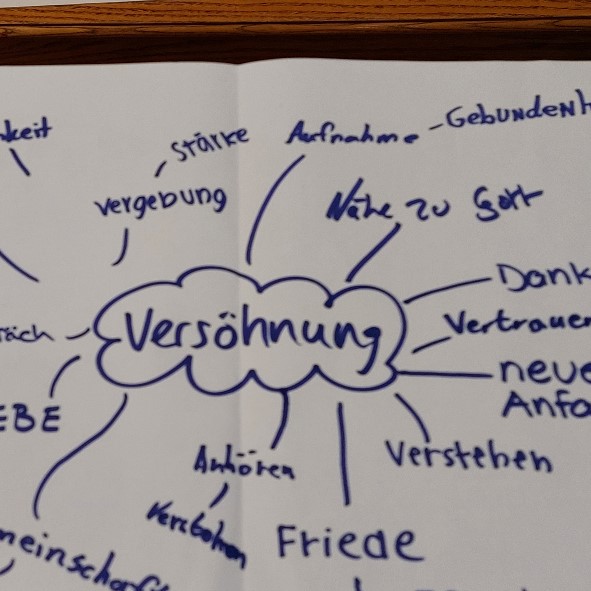 keit
Stärke
Aufnahme - Gebundenh
Vergebung
Nähe zu Gott
Dank
Versöhnung
Vertrauen
äch
neue
Anfa
EBE
Anhören
Verstehen
Friede
meinschaft